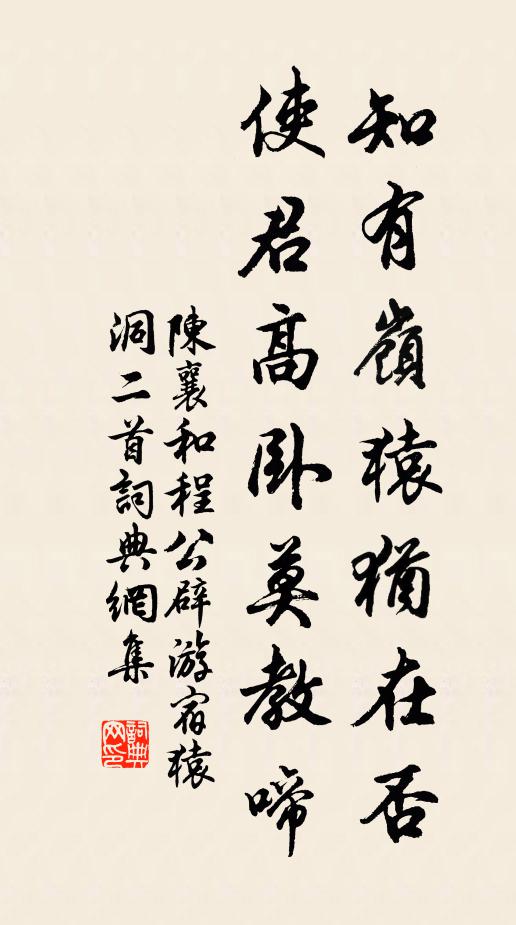 知有嶺猿猶在否
使君高卧莫教啼
陳襄和程公辟游宿猿
洞二首詞典網集
詞典
网印